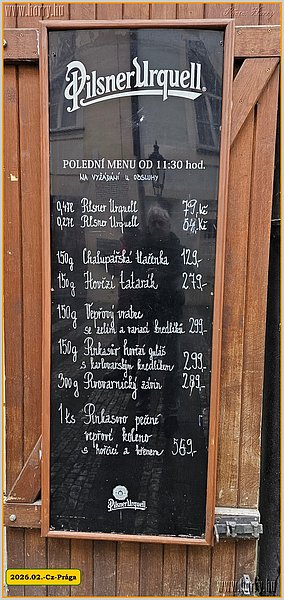 www.harry.hu
Pilsner Urquell
POLEDNÍ MENU OD 11:30 hod.
NA VYŽÁDÁNÍ U OBSLUHY
0,49l Pilsner Urquell 79,Kč
0,27l Pilsner Urquell 54,Kč
150g Chalupářská tlačenka 129,-
150g Hovězí tatarák 279,-
150g Vepřový vrabec
se zelím a variací knedlíků 299,-
150g Pinkasův hovězí guláš
s karlovarským knedlíkem 299,-
300g Pivovarnický závin 289,-
1 ks Pinkasovo pečené
vepřové koleno
s hořčicí a křenem 569,-
Pilsner Urquell
2026.02.-Cz-Prága
www.harry.hu